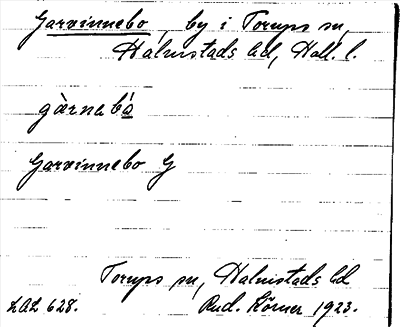 Garvinnebo, by i Torups sn,
Halmstads hd, Hall. l.
gàrnabo
Garvinnebo G
Torups sn, Halmstads hd
LAL 628. Rud. Körner 1923.